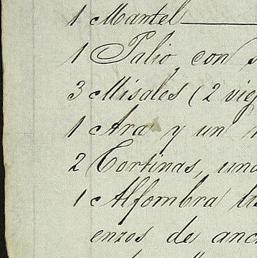 1 Mantel
1 Palio con
3 Misales (2
1 Ara y un
2 Cortinas, una
1 Alfombra
enzos de anc